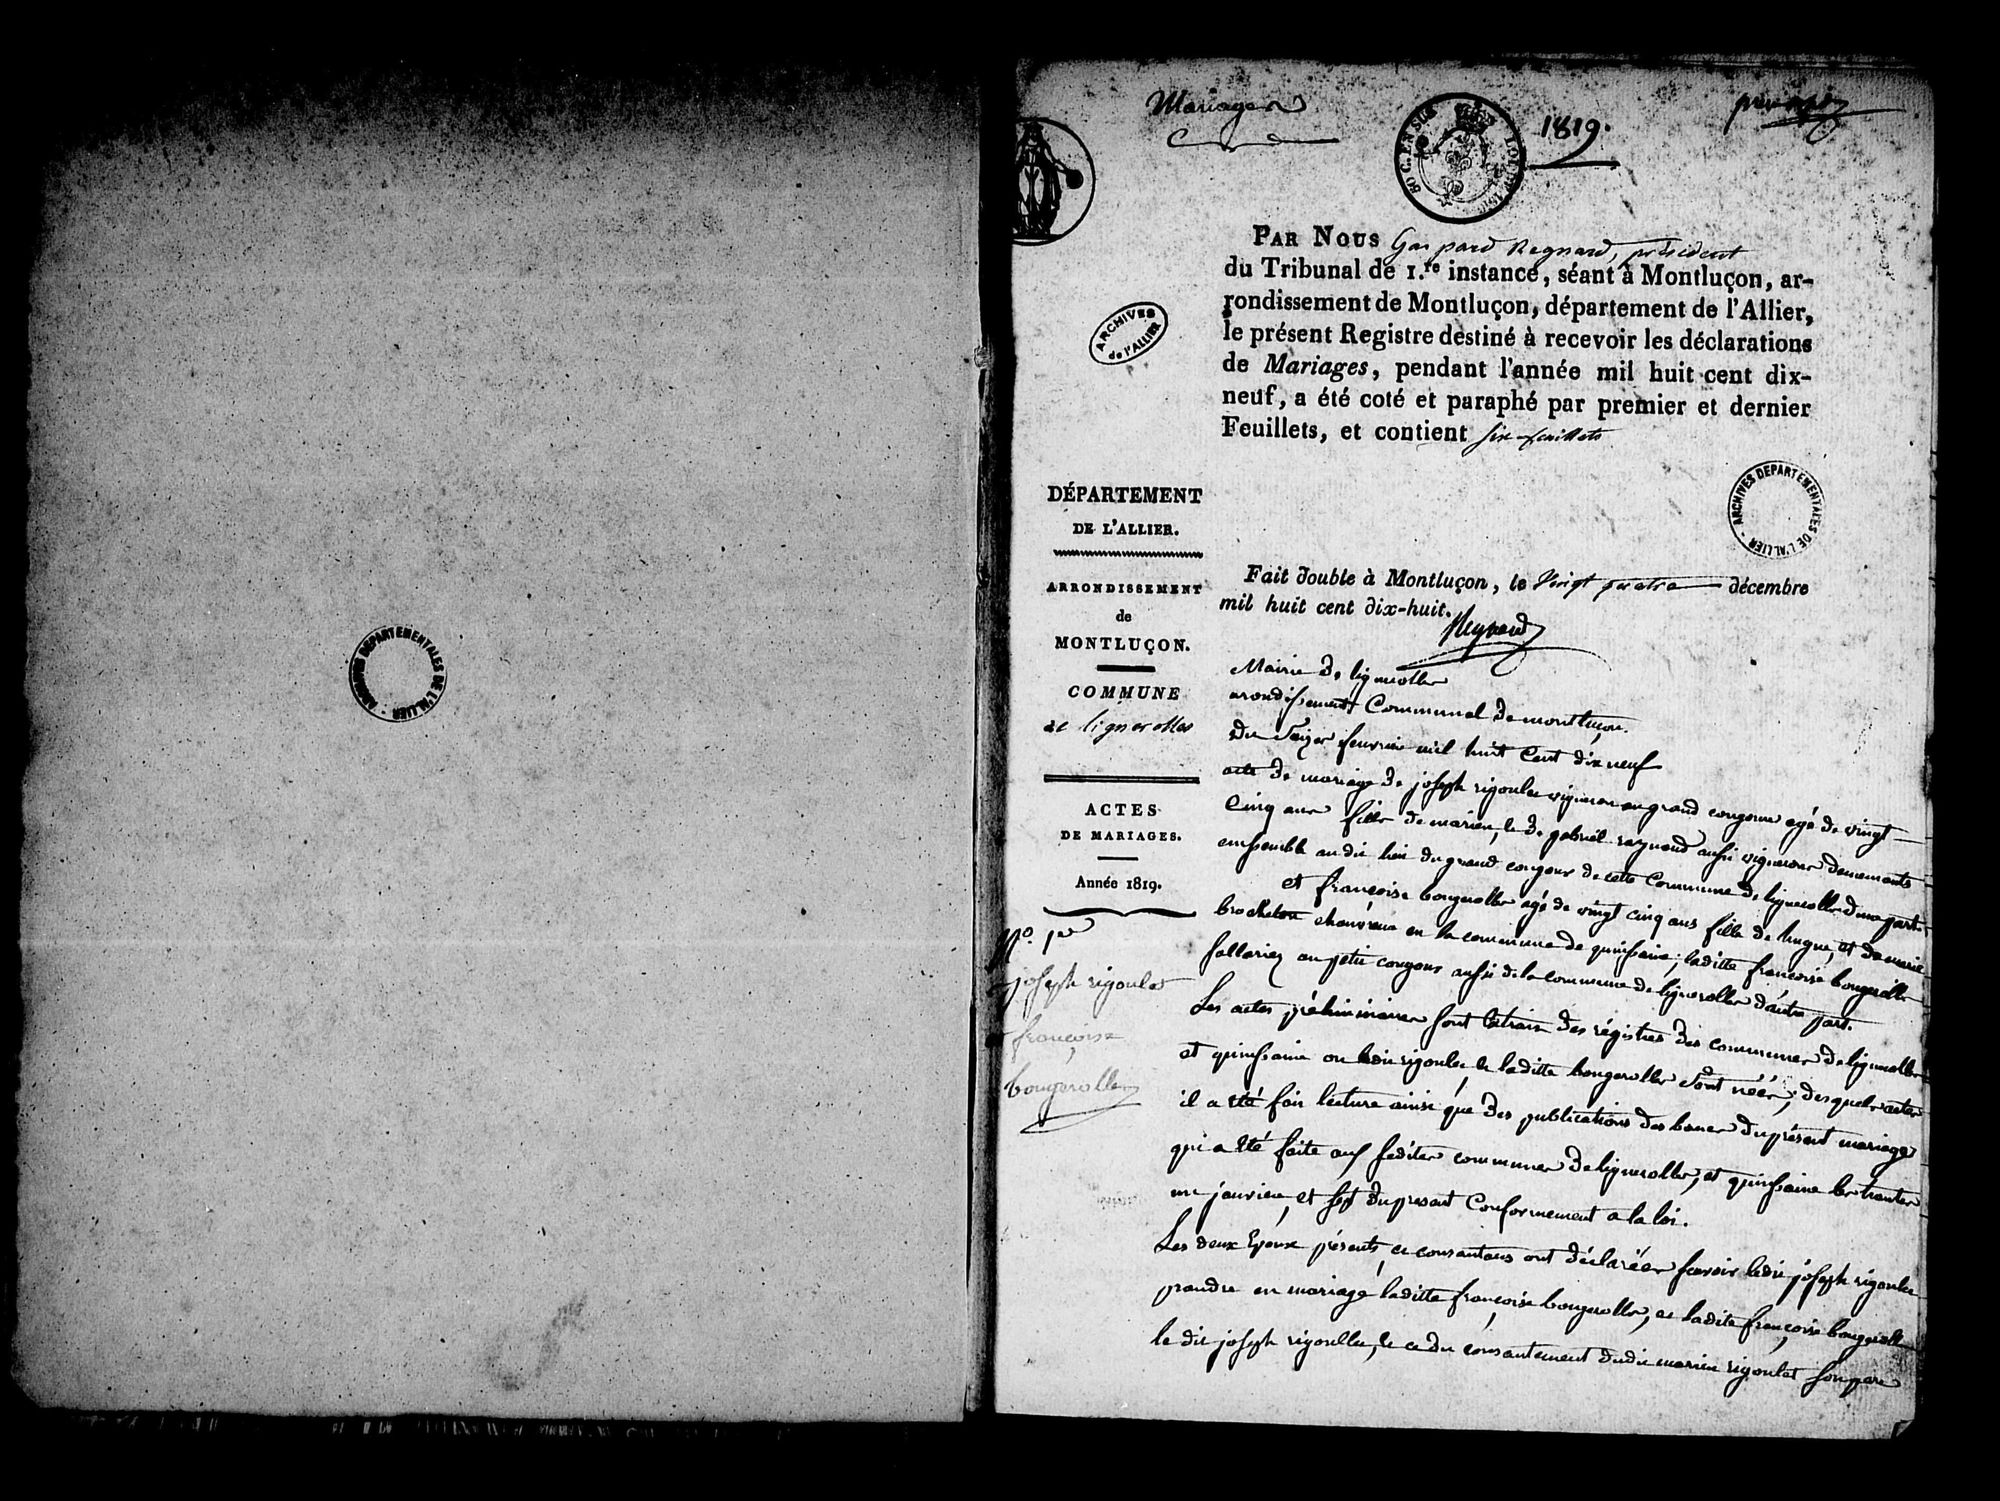 ARCHIVES DEPARTEMENTALES DE L'ALLIER
Mariages
1819.
premier
50 C. EN SUS
ARCHIVES de l'ALLIER
PAR NOUS Gaspard Regnard, président
du Tribunal de 1.re instance, séant à Montluçon, ar-
rondissement de Montluçon, département de l'Allier,
le présent Registre destiné à recevoir les déclarations
de Mariages, pendant l'année mil huit cent dix-
neuf, a été coté et paraphé par premier et dernier
Feuillets, et contient six feuillets
ARCHIVES DEPARTEMENTALES DE L'ALLIER
DÉPARTEMENT
DE L'ALLIER.
ARRONDISSEMENT
de
MONTLUÇON.
COMMUNE
de lignerolles
ACTES
DE MARIAGES.
Année 1819.
N.o 1er
joseph rigoulet
françoise
bougerolle
Fait double à Montluçon, le vingt quatre décembre
mil huit cent dix-huit.
Regnard
Mairie de lignerolle
arondissement Communal de montluçon.
Du Seize feuvrier mil huit Cent dix neuf
acte de mariage de joseph rigoulet vigneron au grand cougour agé de vingt
Cinq ans fills de marien, et de gabriel raynaud aussi vigneron demeurants
ensemble au dit lieu du grand cougour de cette Commune de lignerolle d'une part.
et françoise bougerolle agé de vingt cinq ans fille de hugue, et de marie
brocheton en la commune de quinssaine; laditte françoise bougerolle
au petit cougour aussi de la commune de lignerolle d'autre part.
Les actes préliminaires sont extrais des régistres des communes de lignerolle
et quinssaine ou ledit rigoulet et laditte bougerolle sont néés; desquels actes
il a été fait lecture ainsi que des publications des bancs du présent mariage
qui a été faite aux sedites communes de lignerolle, et quinssaine les trente
un janvier, et sept du présent Conformement a la loi.
Les deux Epoux présents et consantans ont déclarées savoir ledit joseph rigoulet
prandre en mariage laditte françoise bougerolle, et ladite françoise bougerolle
le dit joseph rigoullet, et ce du consantement dudit marien rigoulet son pere